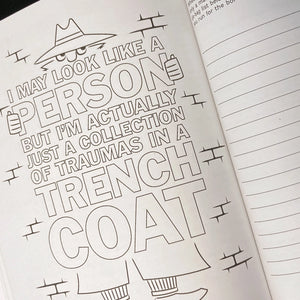 I MAY LOOK LIKE A
PERSON
BUT I'M ACTUALLY
JUST A COLLECTION
OF TRAUMAS IN A
TRENCH
COAT